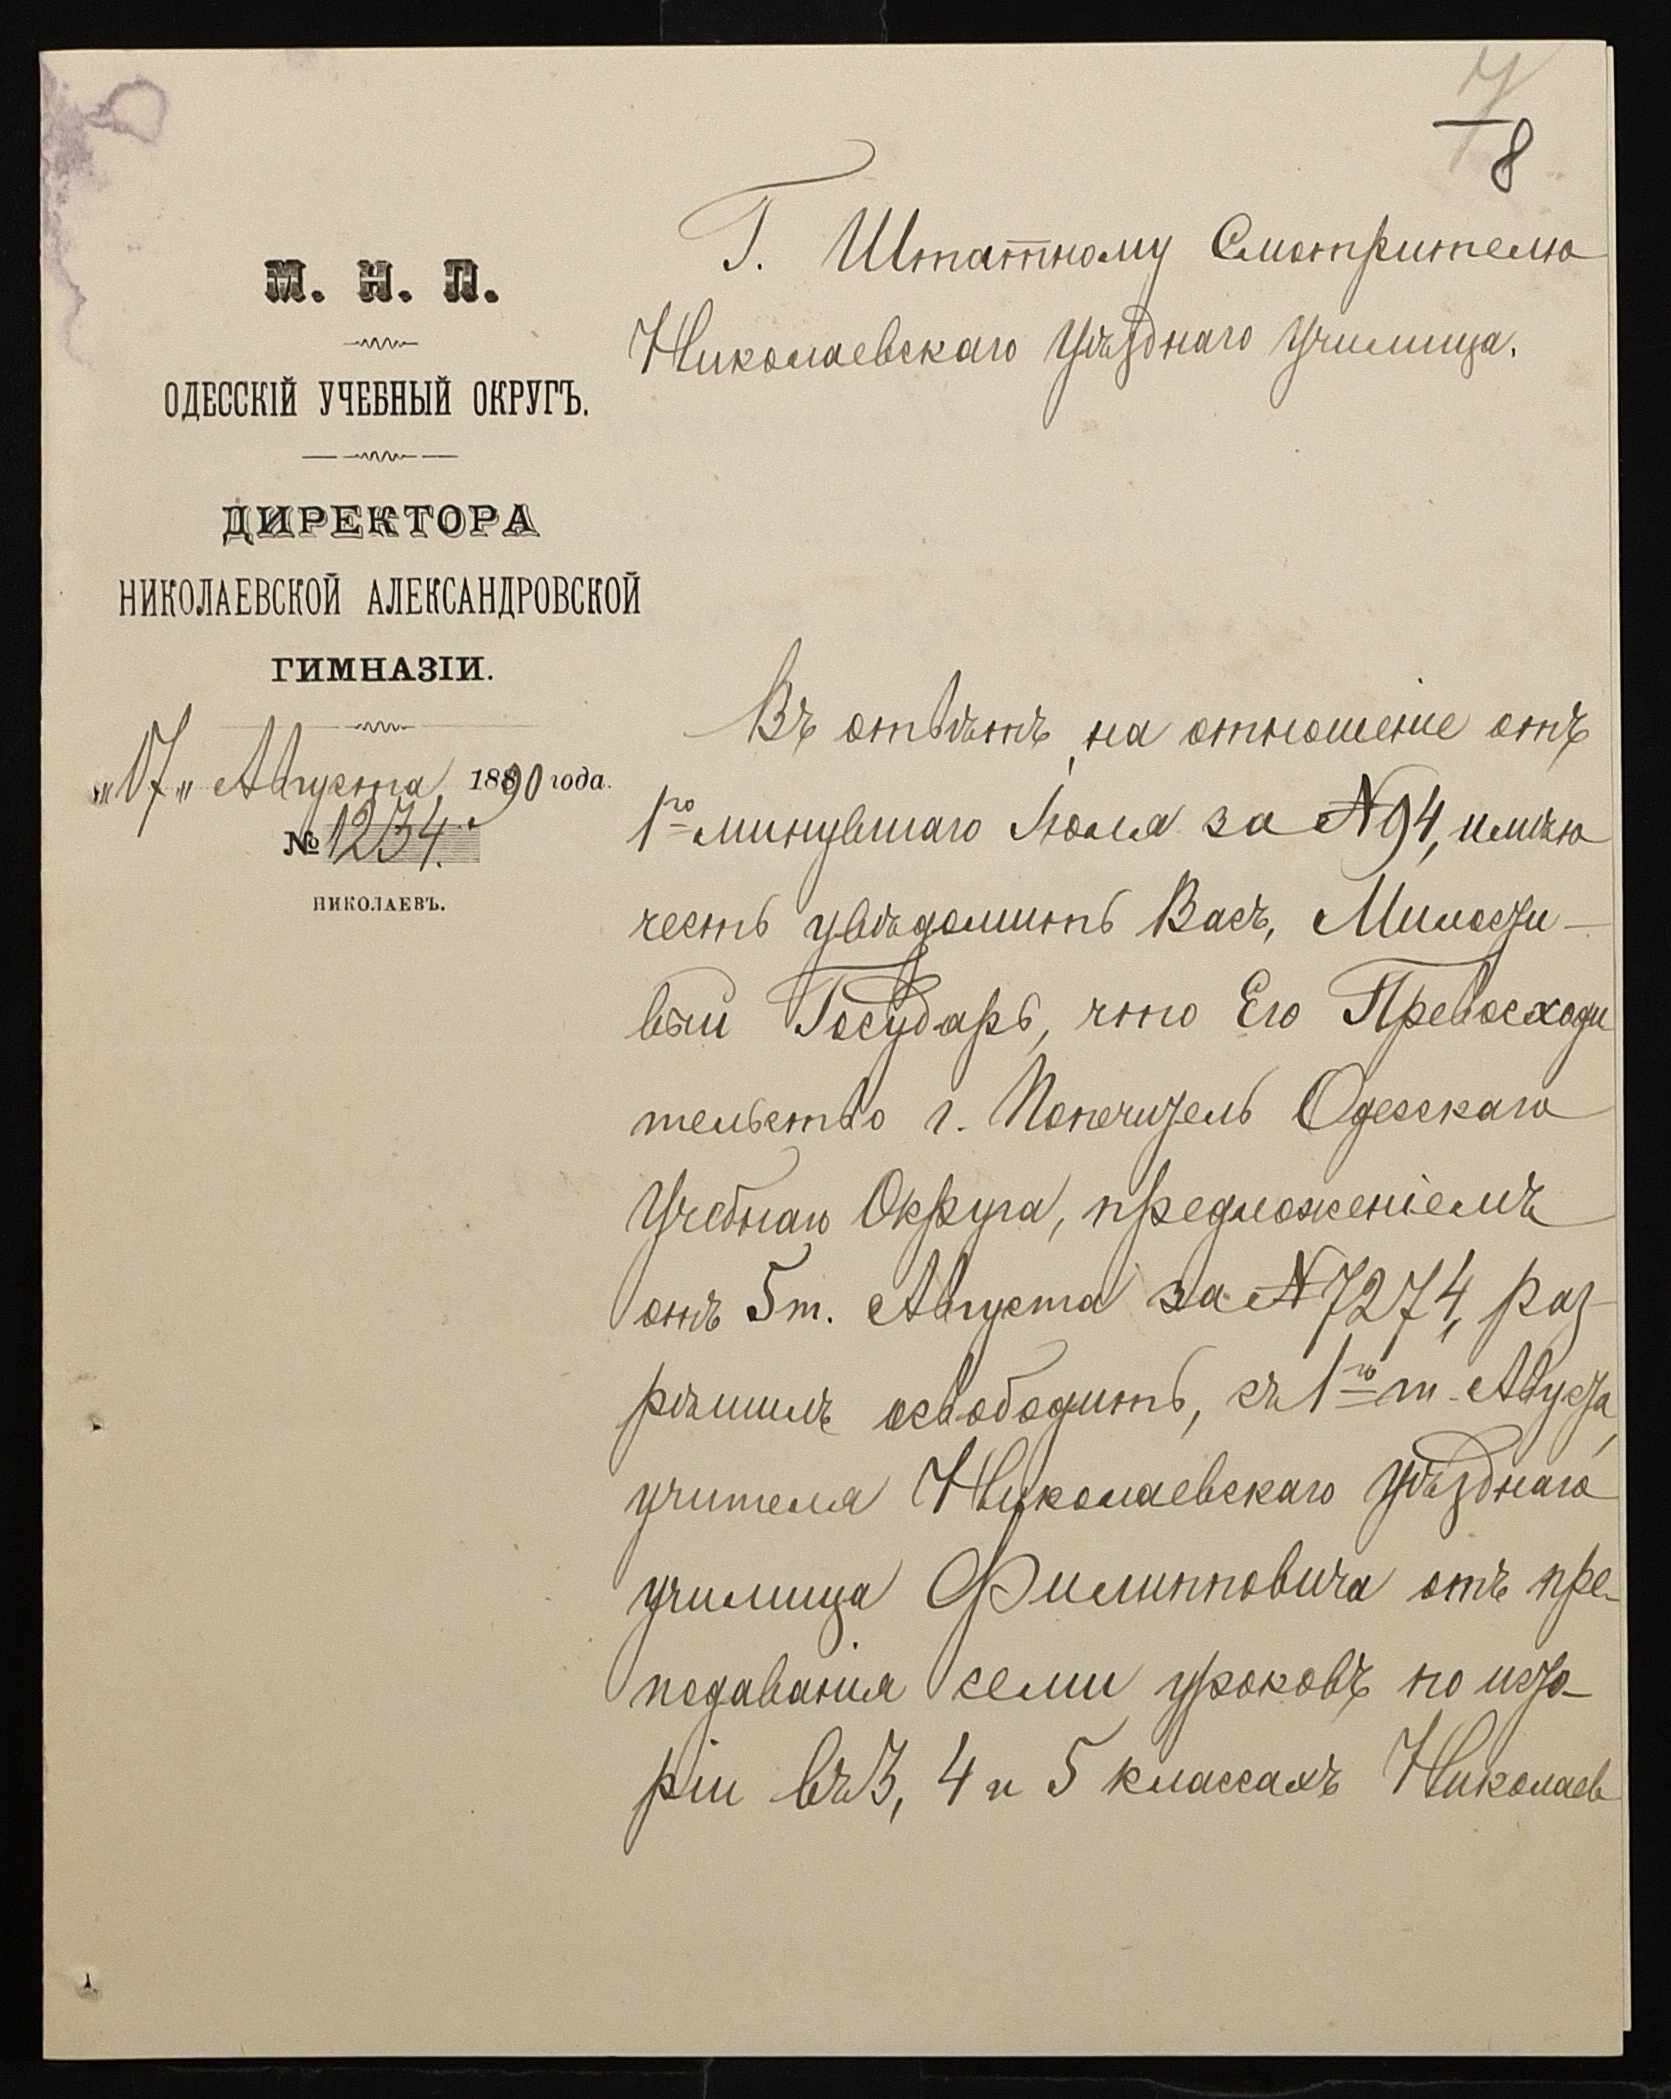 7
8
М. Н. П.
ОДЕССКІЙ УЧЕБНЫЙ ОКРУГЪ.
ДИРЕКТОРА
НИКОЛАЕВСКОЙ АЛЕКСАНДРОВСКОЙ
ГИМНАЗІИ.
„17" Августа 1890 года.
№ 1234.
НИКОЛАЕВЪ.
Г. Штатному Смотрителю
Николаевскаго Уѣзднаго Училища.
Въ отвѣтъ на отношеніе отъ
1го минувшаго Іюля за №94, имѣю
честь увѣдомить Васъ, Милости-
вый Государь, что Его Превосходи
тельство г. Попечитель Одесскаго
Учебнаго Округа, предложеніемъ
отъ 5 т. Августа за №7274, раз-
рѣшилъ освободить, съ 1го т. Августа,
учителя Николаевскаго Уѣзднаго
училища Филипповича отъ пре-
подаванія семи уроковъ по исто-
ріи въ 3, 4 и 5 классахъ Николаев